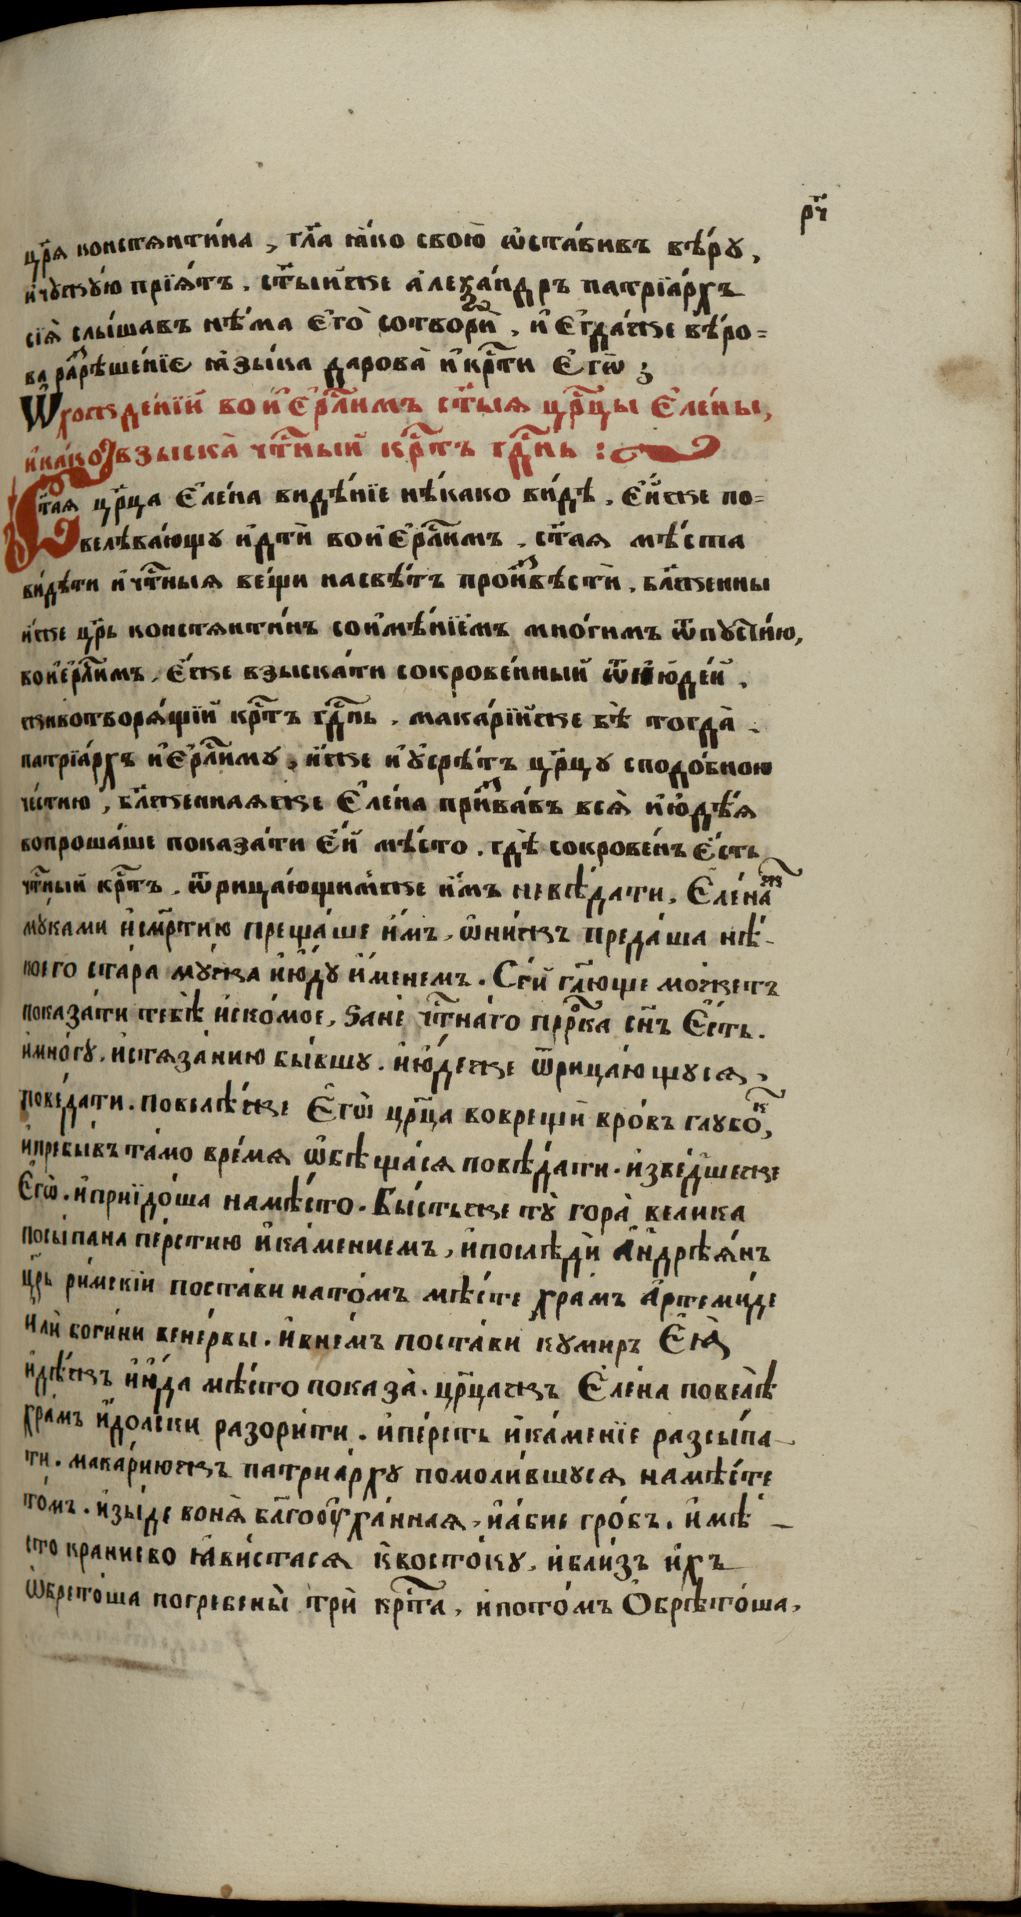 рч҃і
цр҃я константи́на, гл҃а ꙗ҆́ко свою̀ ѡ҆ста́вивъ вѣ́ру,
и҆чꙋжꙋ́ю прїѧ́тъ. ст҃ы́йже а҆леѯа́ндръ патрїа́рхъ
сїѧ̀ слы́шавъ нѣ́ма є҆го̀ сотворѝ, и҆ є҆гда́же вѣ́ро=
ва разрѣше́нїе ꙗ҆зы́ка дарова̀ и҆ кр҃сти є҆го̀ ;
Ѿхожде́нїи во и҆є҆рл҃и́мъ ст҃ы́ѧ цр҃цы є҆ле́ны,
и҆ка́ко взыска̀ чт҃ны́й кр҃стъ гдⷭ҇нь :
Ст҃а́ѧ цр҃ца є҆ле́на видѣ́нїе нѣ́како ви́дѣ. є҆́йже по=
велѣва́ющꙋ и҆дтѝ во и҆є҆рл҃и́мъ, ст҃а́ѧ мѣ́ста
ви́дѣти и҆ чт҃ны́ѧ ве́щи насвѣ́тъ произвѣстѝ. бл҃же́нны
и́же цр҃ь константи́нъ со и҆мѣ́нїемъ мно́гимъ ѿпꙋсти́ю,
во и҆є҆рл҃и́мъ, є҆́же взыска́ти сокрове́нный ѿ і҆юде́й.
животворѧ́щїй кр҃стъ гдⷭ҇нь. мака́рїйже бѣ̀ тогда̀
патрїа́рхъ и҆є҆рл҃и́мꙋ, и҆́же и҆ ᲂу҆срѣ́тъ цр҃цꙋ сподо́бною
че́стию, бл҃же́ннаѧже є҆ле́на призва́въ всѧ̀ и҆юдѣ́ѧ
вопроша́ше показа́ти є҆́й мѣ́сто. гдѣ̀ сокрове́нъ є҆́сть
чт҃ный кр҃стъ. ѿрица́ющимже и҆́мъ невѣ́дати, є҆ле́наже
мꙋ́ками и҆ см҃ртию преща́ше и҆́мъ, ѻ҆ни́жъ преда́ша нѣ́-
коего ста́ра мꙋ́жа и҆ю́дꙋ и҆́менемъ. Се́й гл҃юще мо́жетъ
показа́ти тебѣ̀ и҆ско́мое, занѐ чт҃на́го прⷪ҇ро́ка сн҃ъ є҆́сть.
и҆мно́гꙋ, и҆стѧза́нию бы́вшꙋ. и҆ю́деже ѿрица́ющꙋсѧ,
пове́дати. повелѣ́же є҆го̀ цр҃ца воврещѝ вро́въ глꙋбо́к,
и҆пребы́въ та́мо вре́мѧ ѡ҆бѣща́сѧ повѣ́дати. и҆зве́дшеже
є҆го̀. и҆прїидо́ша намѣ́сто. Бы́стьже тꙋ̀ гора̀ вели́ка
посы́пана пе́рстию и҆ка́мениемъ, и҆послѣдѝ а҆ндрѣѧ́нъ
цр҃ь ри́мскїи поста́ви нато́мъ мѣ́сте хра́мъ а҆ртеми́де
и҆лѝ боги́ни вене́рвы. и҆вне́мъ поста́ви кꙋми́ръ є҆ѧ̀
и҆дѣ́жъ и҆ю́да мѣ́сто показа̀. цр҃цажъ є҆ле́на повелѣ̀
хра́мъ и҆́долски разори́ти. и҆пе́рсть и҆ка́менїе разсы́па-
ти. мака́риюжъ патриа́рхꙋ помоли́вшꙋсѧ намѣ́сте
то́мъ. и҆зы́де вонѧ̀ бл҃гоᲂу҆ха́нная, и҆а́бие гро́бъ. и҆мѣ́ -
сто краниево ꙗ҆ви́стасѧ к̾восто́кꙋ, и҆бли́зъ и҆́хъ
ѡ҆брето́ша погребены̀ трѝ кр҃ста, и҆пото́мъ ѻ҆брѣто́ша,